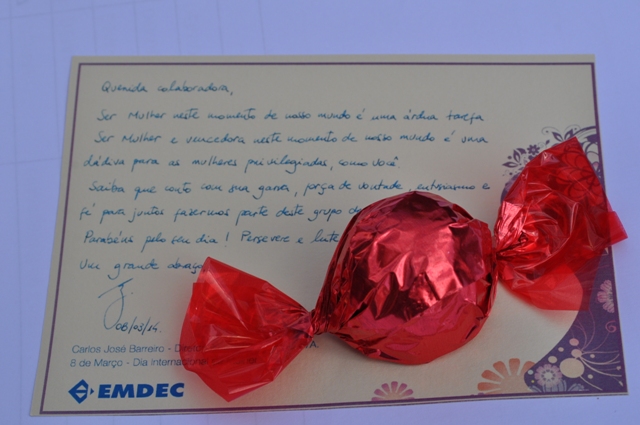 Querida colaboradora,
Ser Mulher neste momento de nosso mundo é uma árdua tarefa
Ser Mulher e vencedora neste momento de nosso mundo é uma
dádiva para as mulheres privilegiadas, como você
Saiba que conto com sua garra, força de vontade, entusiasmo e
fé para juntos fazermos parte deste grupo de
Parabéns pelo seu dia! Persevere e lute
Um grande abraço
08/03/14.
Carlos José Barreiro - A.
8 de Março - Dia Internacional
EMDEC